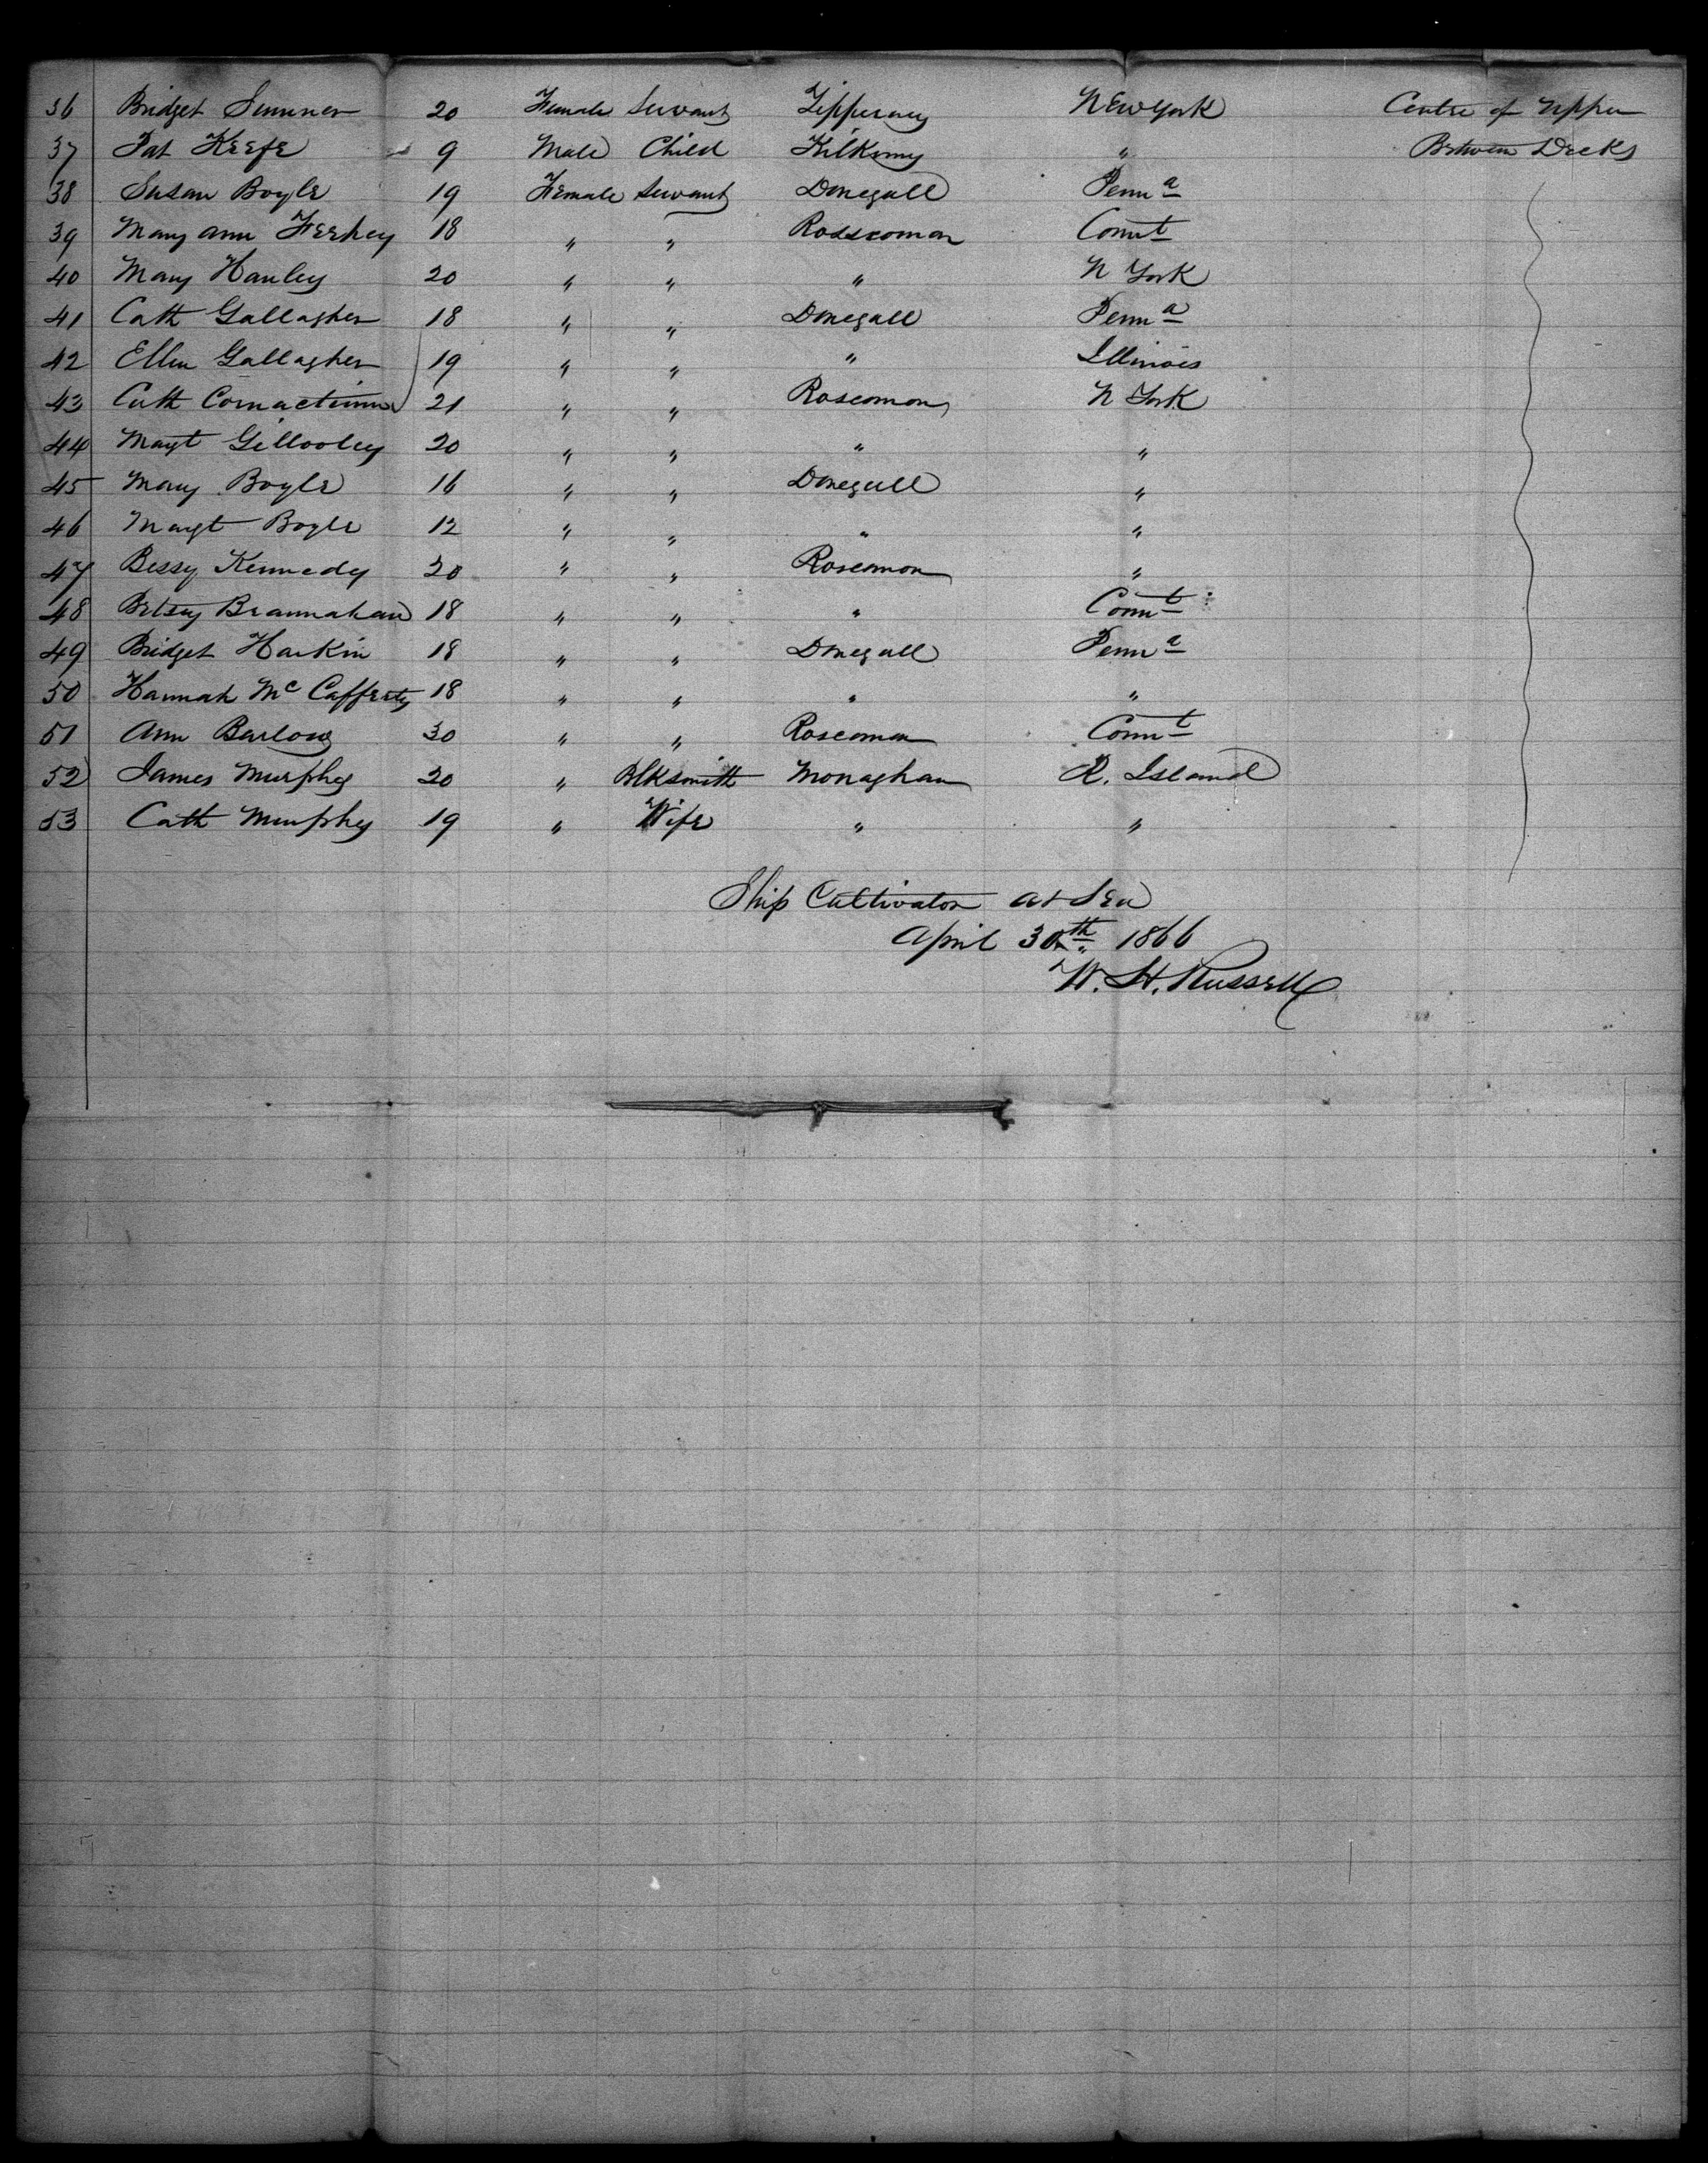 36 Bridget Sumner 20 Female Servant Tipperary New York Centre of Upper
37 Pat Keefe 9 Male Child Kilkenny " Between Decks
38 Susan Boyle 19 Female Servant Donegall Penn a
39 Mary Ann 18 " " Rosscomon Connt
40 Mary Hanley 20 " " " N York
41 Cath Gallagher 18 " " Donegall Penn a
42 Ellen Gallagher 19 " " " Illinois
43 Cath 21 " " Roscomon N York
44 Magt Gillooley 20 " " " "
45 Mary Boyle 16 " " Donegall "
46 Magt Boyle 12 " " " "
47 Bessy Kennedy 20 " " Roscomon "
48 Betsey Brannahan 18 " " " Connt
49 Bridget Harkin 18 " " Donegall Penn a
50 Hannah Mc Cafferty 18 " " " "
51 Ann Barlow 30 " " Roscomon Connt
52 James Murphy 20 " Blksmith Monaghan R. Island
53 Cath Murphy 19 " Wife " "
Ship Cultivator at Sea
April 30th 1866
W. H. Russell